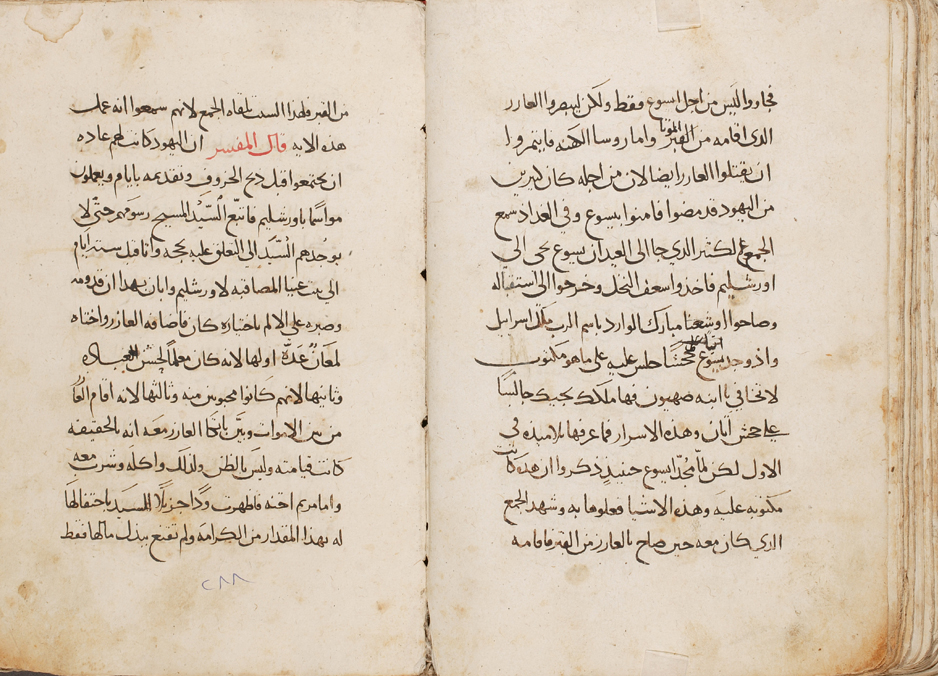 فجاووا ليس من اجل ايسوع فقط ولكن ليبصروا العازر
الذي اقامه من القبر الموتا واما روسا الكهنه فايتمروا
ان يقتلوا العازر ايضا لان من اجله كان كثيرين
من اليهود قد مضوا فامنوا بيسوع وفي الغداد سمع
الجموع الكثير الذي جا الى العيد ان يسوع يجى الي
اورشليم فاخذوا سعف النخل وخرجوا الى استقباله
وصاحوا اوشعنا مبارك الوارد باسم الرب ملك اسرايل
واذ وجد يسوع جحشا جلس عليه على ما هو مكتوب
لا تخافي يا ابنه صهيون فها ملكك يجيك جالسًا
على جحش اتان وهذه الاسرار فما عرفها تلاميذه في
الاول لكن لمّا تمجّد ايسوع حنيد ذكروا ان هذه كانت
مكتوبه عليه وهذه الاشيا فعلوها به وشهد الجمع
الذي كان معه حين صاح بالعازر من القبر فاقامه
من القبر فلهذا السبب تلقاه الجمع لانهم سمعوا انه عمل
هذه الايه قال المفسر ان اليهود كانت لهم عاده
ان يجتمعوا قبل ذبح الخروف وتقديمه بايام ويعملون
مواسما باورشليم فاتبع السّيّد المسيح رسومهم حتّى لا
يوجدهم السّيّد الى التعلق عليه بحجه واتا قبل سته ايام
الى بيت عنيا المصاقبه لاورشليم وابان بهذا ان قدومه
وصبره على الالم باختياره كان فاضافه العازر واختاه
لمعانٍ عدّة اولها لانه كان معلماً
وثانيها لانهم كانوا محبوبين منه وثالثها لانه اقام
من بين الاموات وبيّن باتكا العازر معه انه بالحقيقه
كانت قيامته وليس بالظن ولذلك واكله وشرب معه
واما مريم اخته فاظهرت ودّا جزيلًا للسيد باحتفالها
له بهذا المقدار من الكرامه ولم تقنع ببذل مالها فقط
٢٨٨